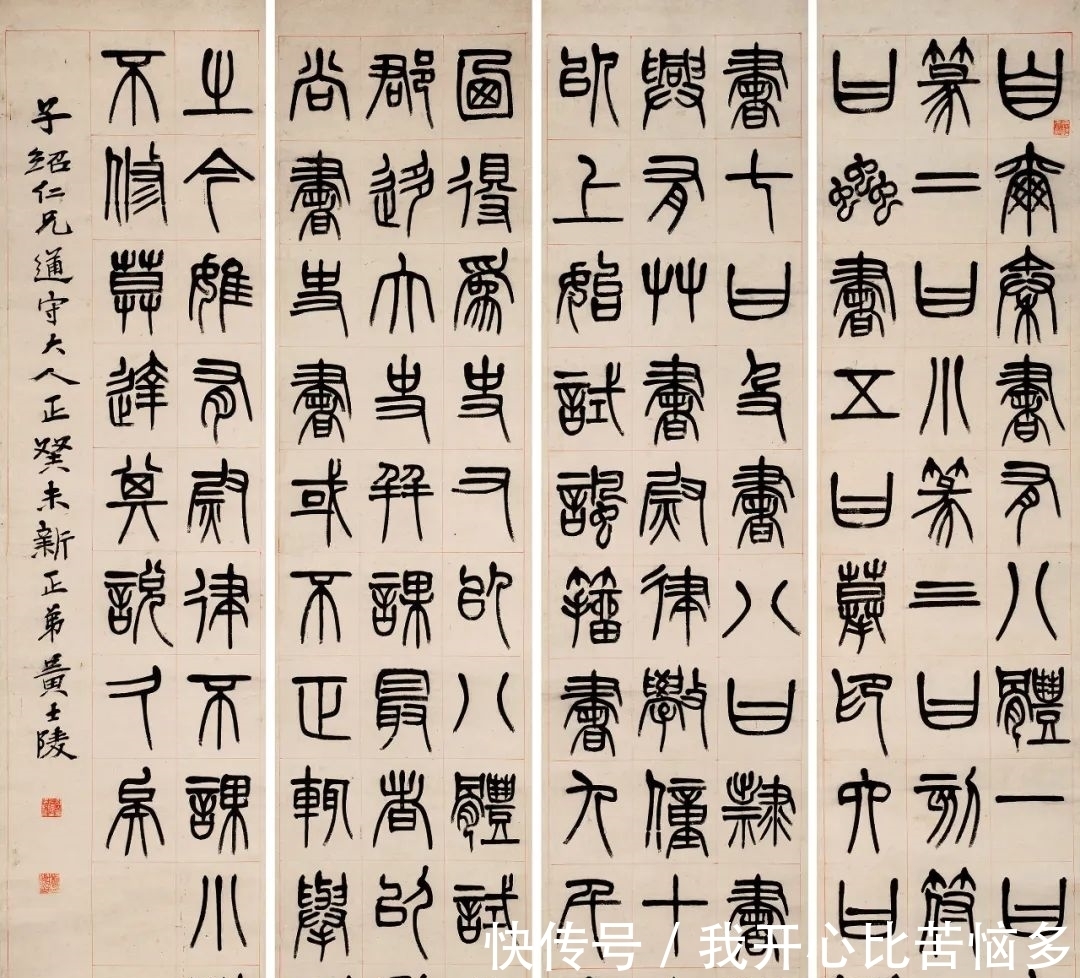 自爾秦書有八體一曰
篆二曰小篆三曰刻符
曰蟲書五曰摹印六曰
書七曰殳書八曰隸書
興有艸書尉律學僮十
以上始試諷籀書九千
得為史又以八體試
郡移大史并課最者以
尚書史書或不正輒舉
之今雖有尉律不課小
不修莫達其說久矣
子紹仁兄通守大人正癸未新正弟黃士陵
快传号 / 我开心比苦恼多